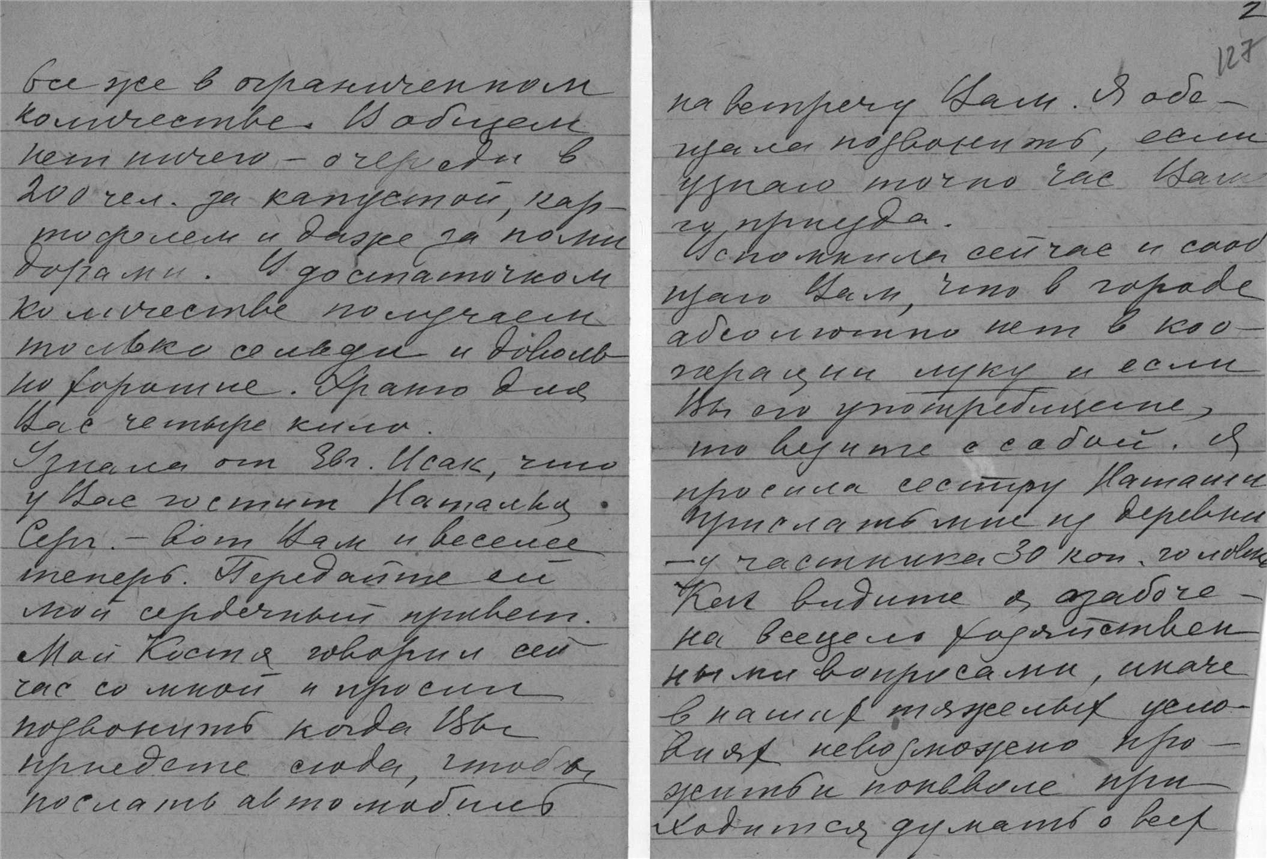 все же в ограниченном
количестве. В общем
нет ничего – очереди в
200 чел. за капустой, кар-
тофелем и даже за поми
дорами. В достаточном
количестве получаем
только сельди и доволь
но хорошие. Храню для
Вас четыре кило.
Узнала от Евг. Исак, что
у Вас гостит Наталья
Серг. – вот Вам и веселее
теперь. Передайте ей
мой сердечный привет.
Мой Костя говорил сей
час со мной и просил
позвонить когда Вы
приедете сюда, чтобы
послать автомобиль
2
127
навстречу Вам. Я обе-
щала позвонить, если
узнаю точно час Ваше
го приезда.
Вспомнила сейчас и сооб
щаю Вам, что в городе
абсолютно нет в коо-
перации луку и если
Вы его употребляете,
то везите с собой. Я
просила сестру Наташи
прислать мне из деревни
– у частника 30 коп. головка
Как видите я озабоче-
на всецело хозяйствен
ными вопросами, иначе
в наших тяжелых усло-
виях невозможно про-
жить и поневоле при
ходится думать о всех